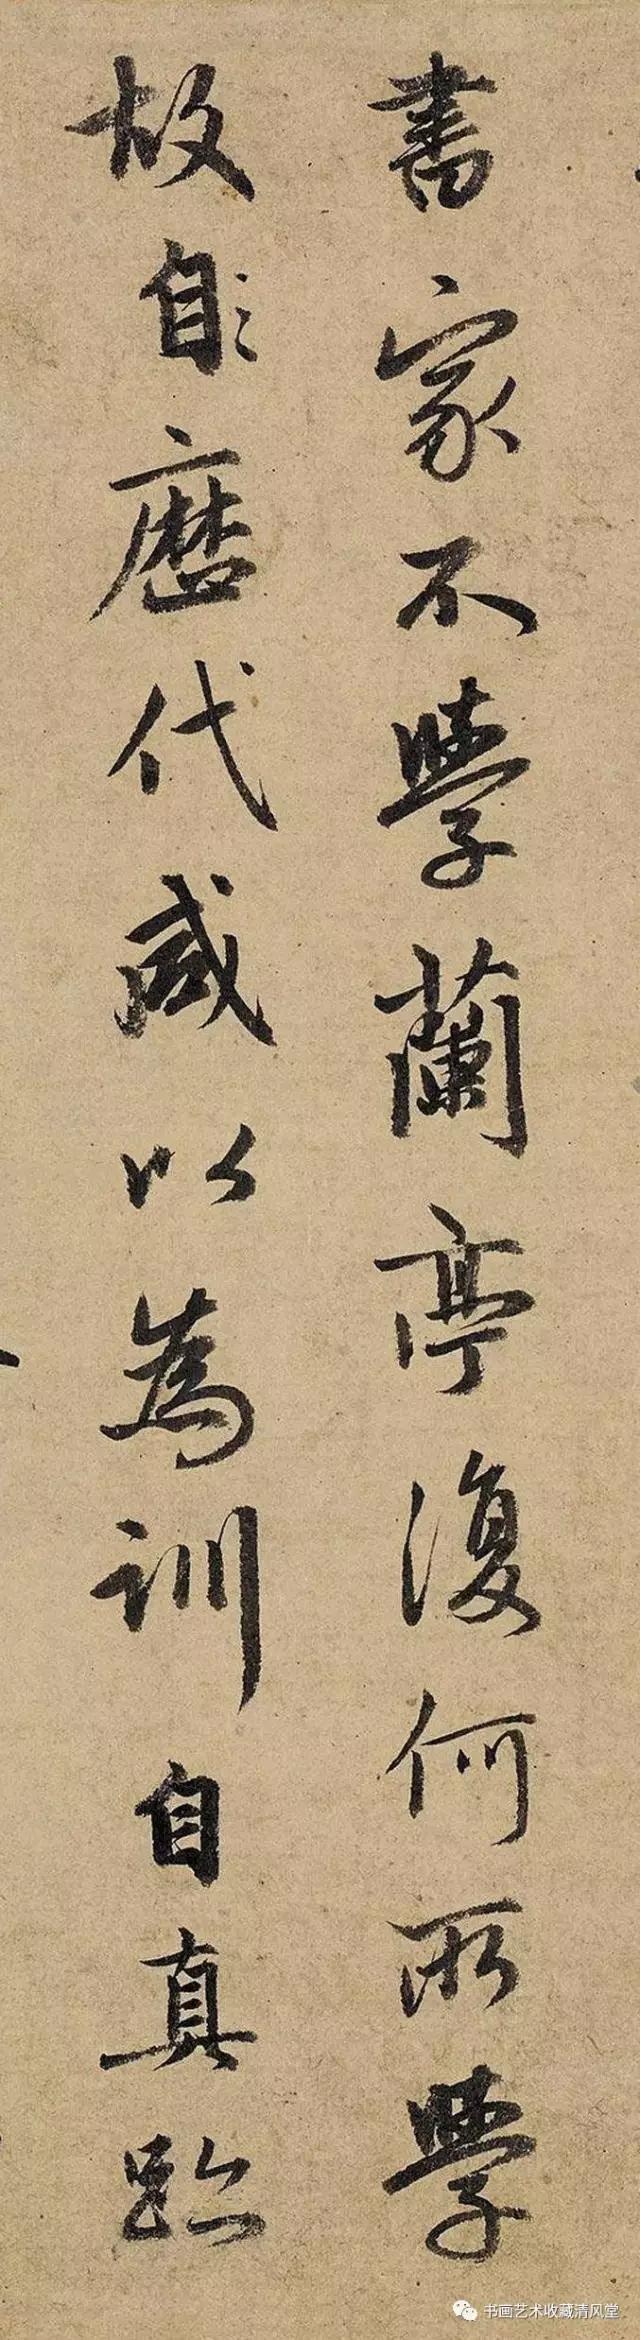 書家不學蘭亭復何所學
故自歷代咸以為訓自真跡
书画艺术收藏清风堂